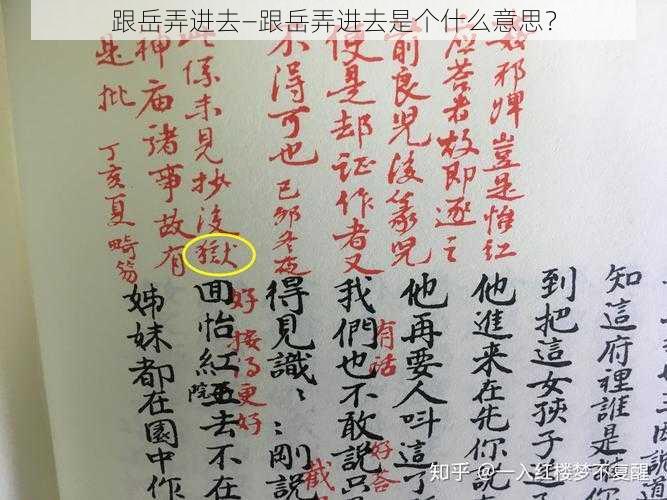 跟岳弄进去—跟岳弄进去是个什么意思？
奸邪婢豈是怡红
应荅者故即逐之
前良児後篆児
便是却证作者又
不得可也 己卯冬夜
此係未見抄没獄
神庙诸事故有
是批 丁亥夏畸笏
知這府裡誰是
到把這女孩子
他進来在先你
他再要人呌這了
有话
我們也不敢說只
好荅
得見識：：剛說
截
好接得更好
回怡紅院去不在
姊妹都在園中作
知乎 @一入红楼梦不复醒